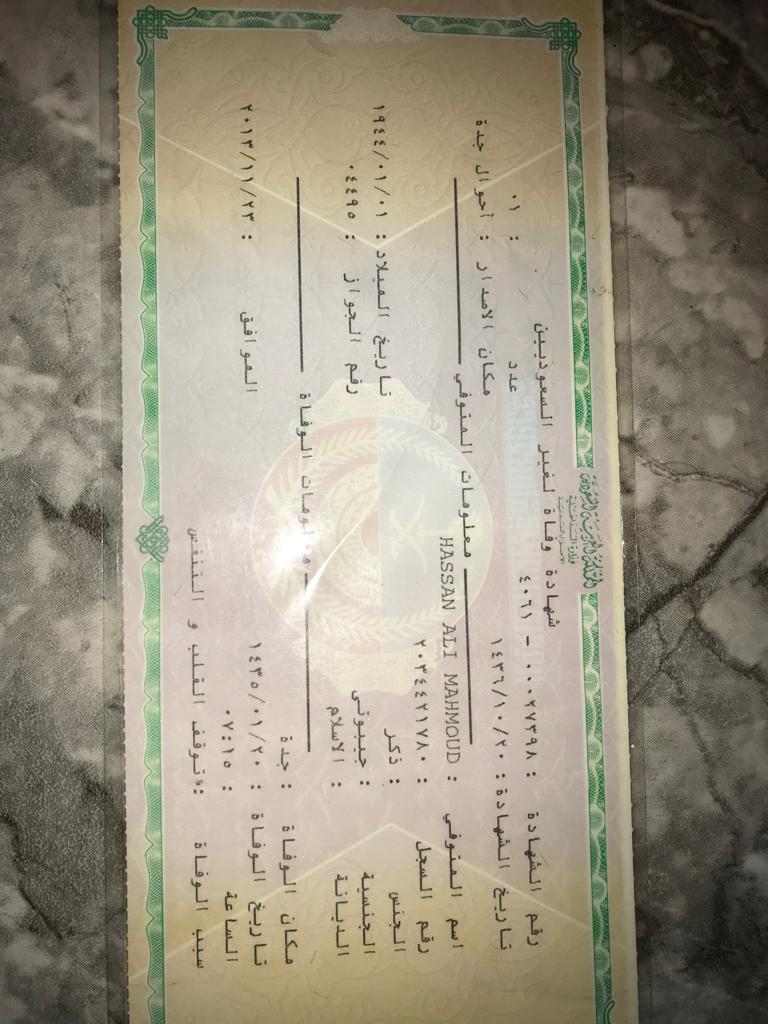 المملكة العربية السعودية
وزارة الداخلية
الأحوال المدنية
شهادة وفاة لغير السعوديين
رقم الشهادة : ٠٠٠٢٧٣٩٨ - ٤٠٦١ عدد : ٠١
تاريخ الشهادة : ١٤٣٦/١٠/٢٠ مكان الاصدار : أحوال جدة
معلومات المتوفي
اسم المتوفي : HASSAN ALI MAHMOUD
رقم السجل : ٢٠٣٤٤٢١٧٨٠
الجنس : ذكر تاريخ الميلاد : ١٩٤٤/٠١/٠١
الجنسية : جيبوتى رقم الجواز : ٠٤٤٩٥
الديانة : الاسلام
معلومات الوفاة
مكان الوفاة : جدة
تاريخ الوفاة : ١٤٣٥/٠١/٢٠ الموافق : ٢٠١٣/١١/٢٣
الساعة : ٠٧:١٥
سبب الوفاة : توقف القلب و التنفس